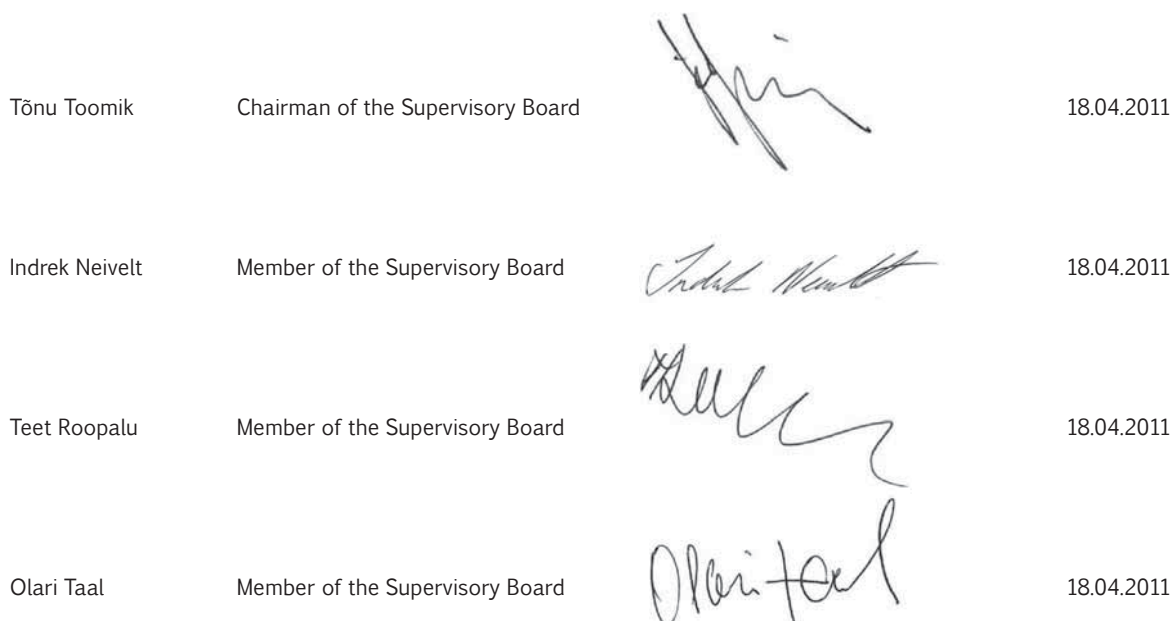 Tõnu Toomik Chairman of the Supervisory Board 18.04.2011
Indrek Neivelt Member of the Supervisory Board Indrek Neivelt 18.04.2011
Teet Roopalu Member of the Supervisory Board 18.04.2011
Olari Taal Member of the Supervisory Board Olari Taal 18.04.2011